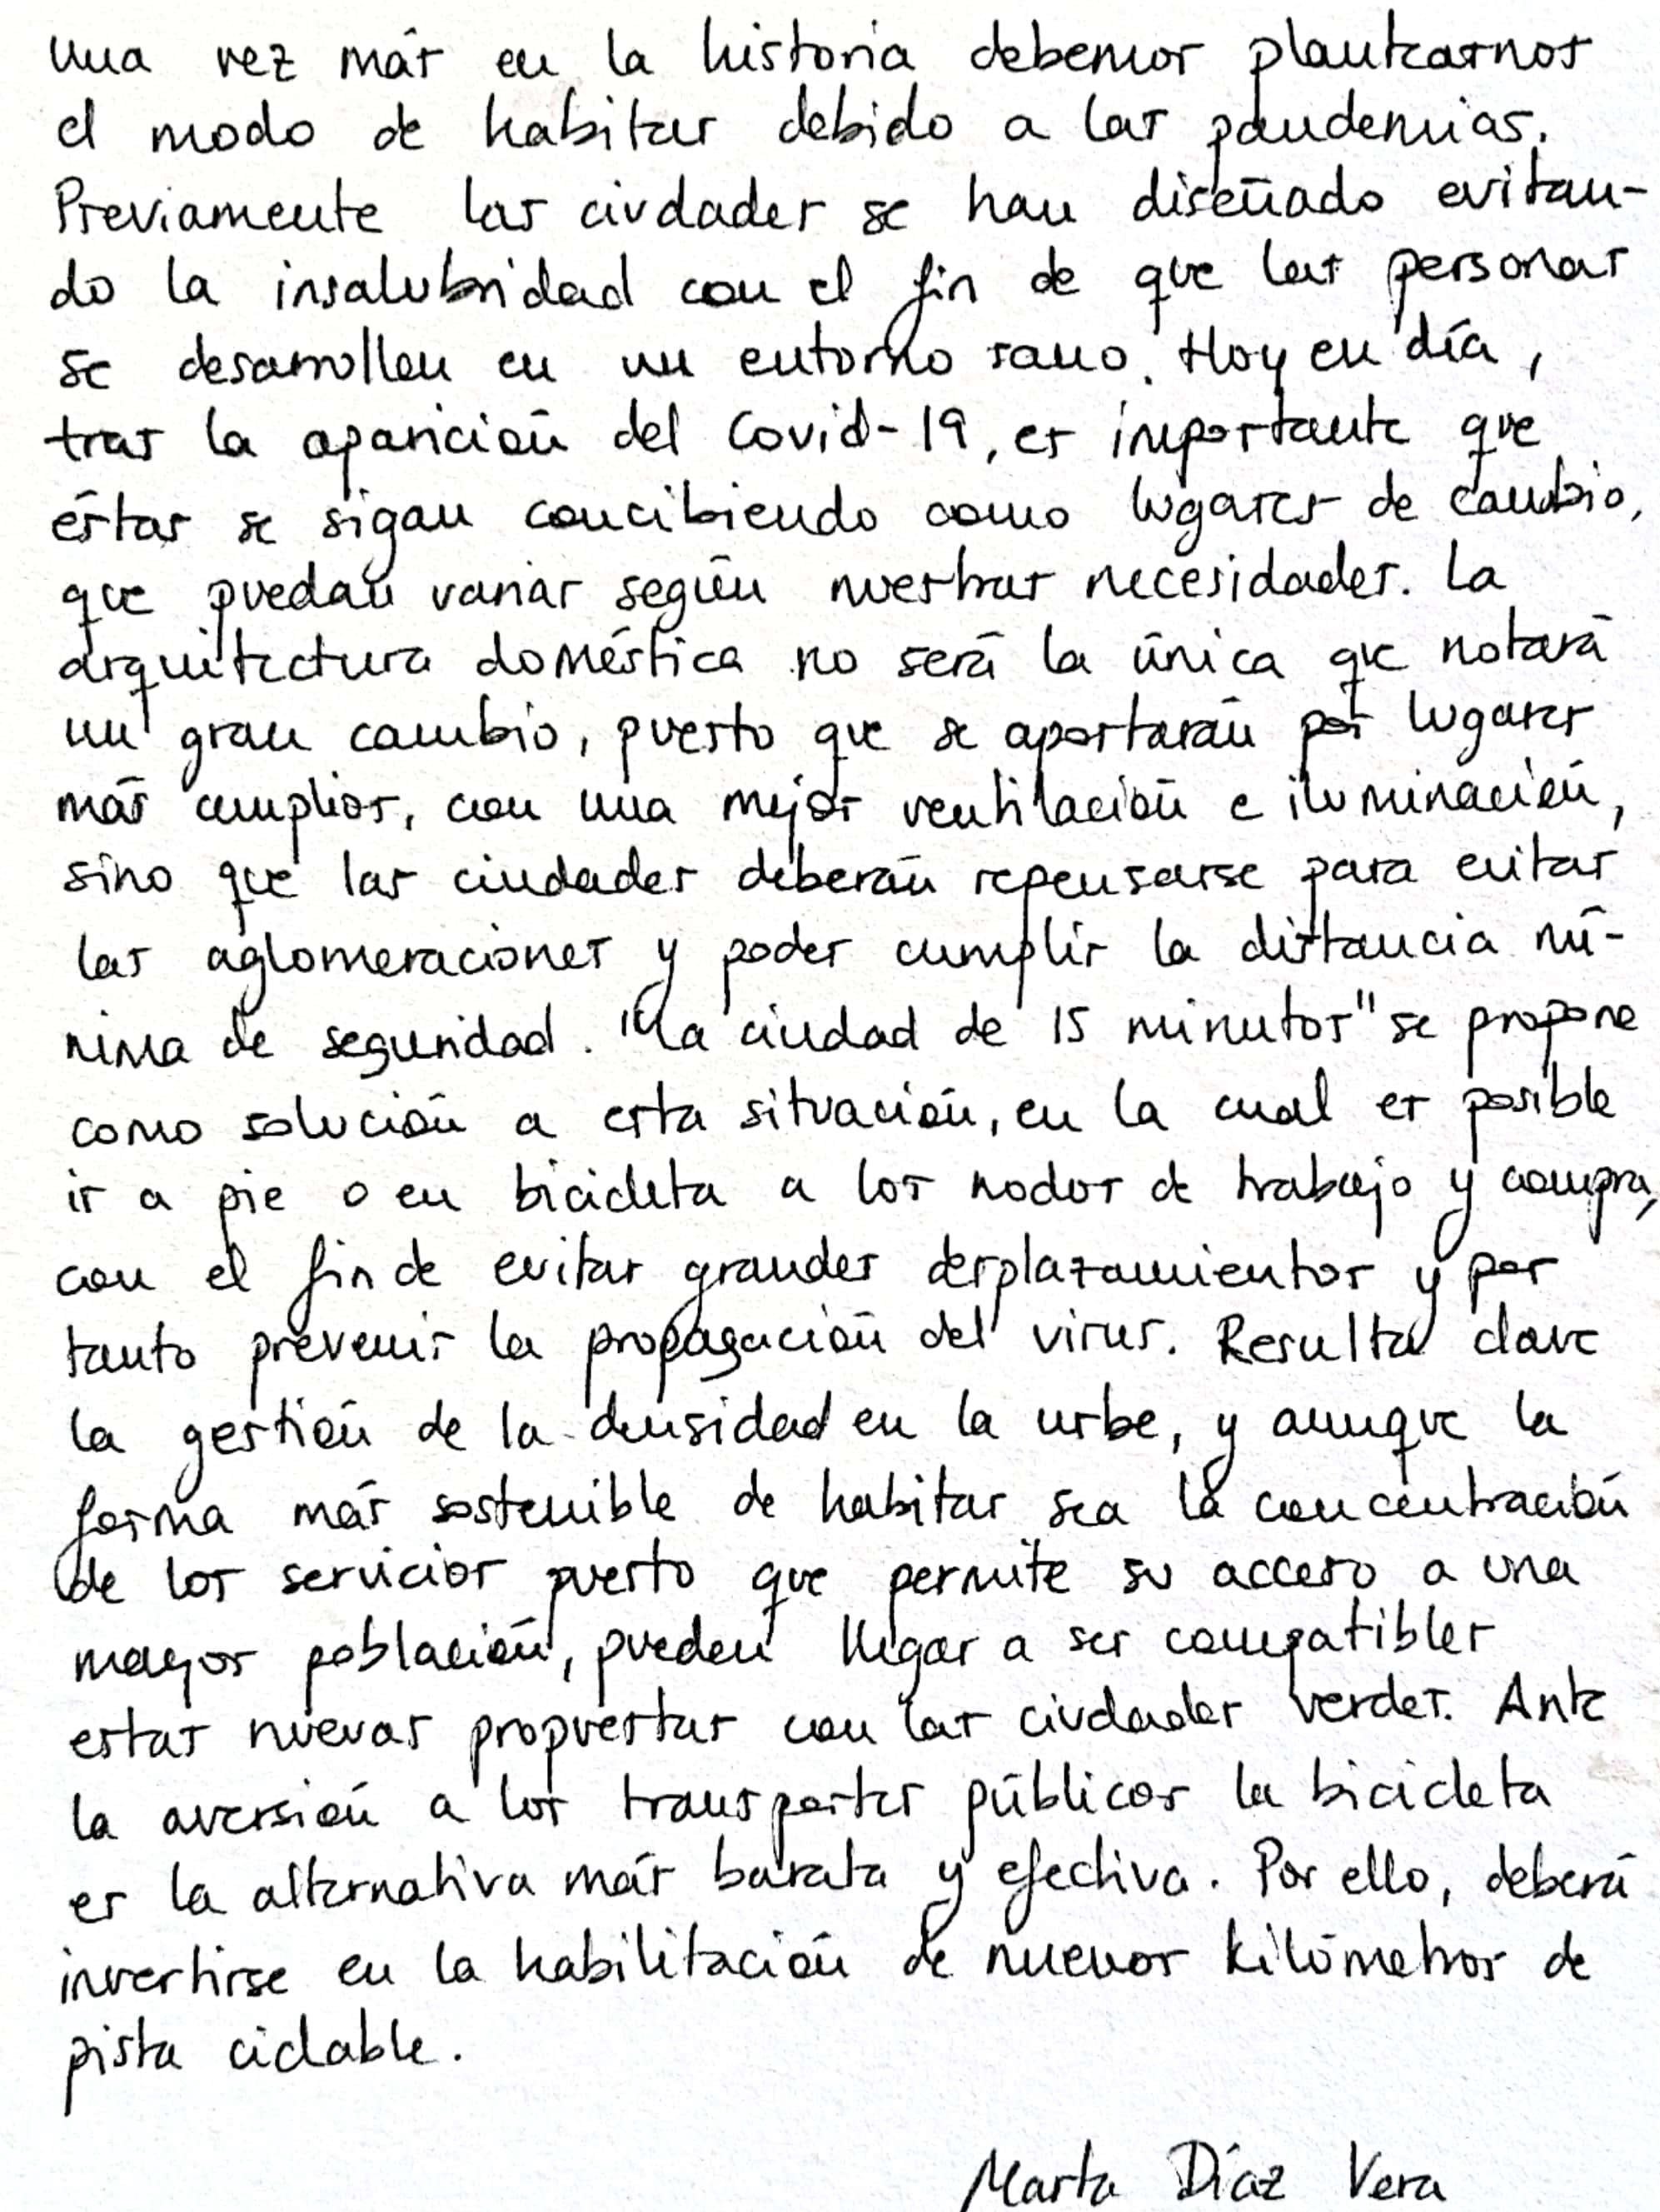 una vez más en la historia debemos plantearnos
el modo de habitar debido a las pandemias.
Previamente las ciudades se han diseñado evitan-
do la insalubridad con el fin de que las personas
se desarrollen en un entorno sano. Hoy en día,
tras la aparición del Covid-19, es importante que
éstas se sigan concibiendo como lugares de cambio,
que puedan variar según nuestras necesidades. La
arquitectura doméstica no será la única que notará
un gran cambio, puesto que se aportarán por lugares
más amplios, con una mejor ventilación e iluminación,
sino que las ciudades deberán repensarse para evitar
las aglomeraciones y poder cumplir la distancia mí-
nima de seguridad. "La ciudad de 15 minutos" se propone
como solución a esta situación, en la cual es posible
ir a pie o en bicicleta a los nodos de trabajo y compra,
con el fin de evitar grandes desplazamientos y por
tanto prevenir la propagación del virus. Resulta clave
la gestión de la densidad en la urbe, y aunque la
forma más sostenible de habitar sea la concentración
de los servicios puesto que permite su acceso a una
mayor población, pueden llegar a ser compatibles
estas nuevas propuestas con las ciudades verdes. Ante
la aversión a los transportes públicos la bicicleta
es la alternativa más barata y efectiva. Por ello, deberá
invertirse en la habilitación de nuevos kilómetros de
pista ciclable.
Marta Díaz Vera